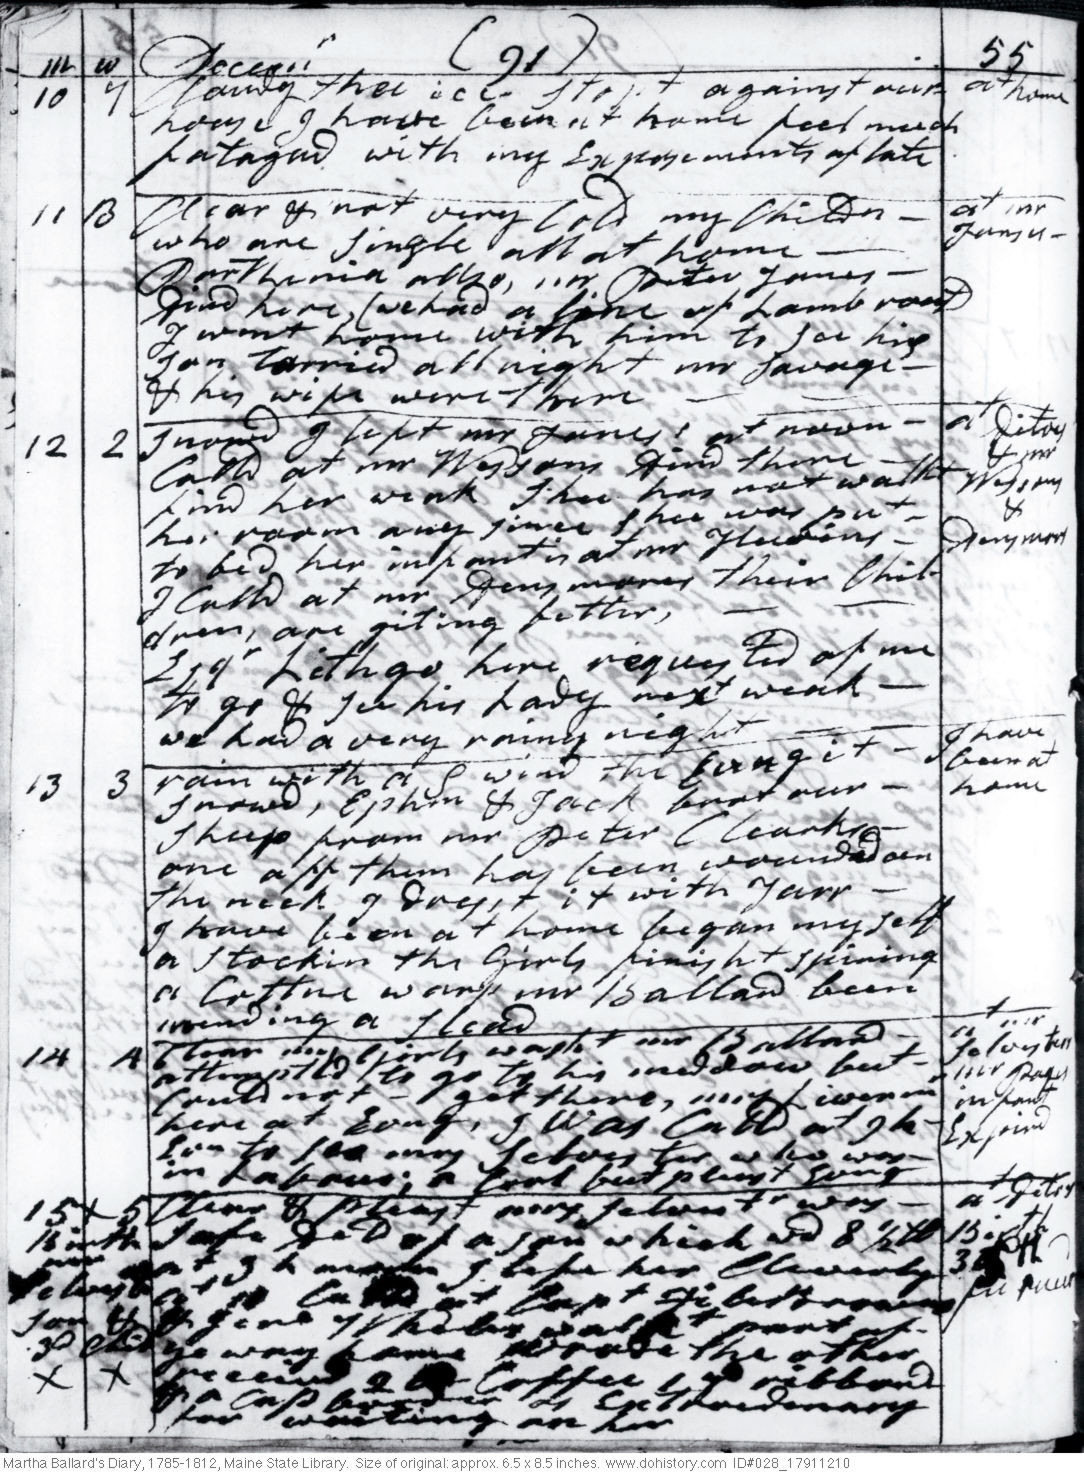 m w Decemr (91) 55
10 7 Cloudy thee ice stopt against our at home
house I have been at home feel much
fatagud with my Exposements of late
11 B Clear & not very Cold my Childn – at mr
who are single all at home – Jones –
Parthenia allso, mr Peter Jones –
Dind here, we had a line of Lamb roast
I went home with him to see his
son tarried all night mr Savage –
& his wife were there –
12 2 Snowd I left mr Jones's at noon – at Ditoes
Calld at mr Wessons Dind there – & mr
find her weak shee has not walkt Wessons
her room any since shee was put – &
to bed her infant is at mr Densmors
I Calld at mr Densmores their Chil
dren, are giting better, –
Esqr Lithgo here requested of me
to go & see his Lady next weak –
we had a very rainy night
13 3 rain with a S wind the Evngit – I have
Snowd, Ephm & Jack brot our – been at
sheep from mr Peter Clearks – home
one off them has been wounded on
the neck I drest it with Tarr –
I have been at home began my self
a Stockin the Girls finisht spining
a Cottne warp mr Ballard been
mending a slead
14 4 Clear my Girls washt mr Ballard – at mr
attempted to go to his meddow but – Selvesters
Could not get there, mr Pages
here at Evng, I was Calld at 9 h infant
Evn to see mrs Selvester who was Expired
in Labour; a Cool but pleast Evng
15 x 5 Clear & pleast mrs Selvestr was – at Ditos
Birth Safe DeD of a son which wd 8 1/2 lb Birth
mr at 3 h morn I left her Cleverly 3
Selvest at 10 Calld at Capt
son &
3d Child ye way home rode the other
x x receivd 2 lb Coffee 1 yd ribbond
& a Cap border as Extraordinary
for waiting on her
Martha Ballard's Diary, 1785-1812, Maine State Library. Size of original: approx. 6.5 x 8.5 inches. www.dohistory.com ID#028_17911210